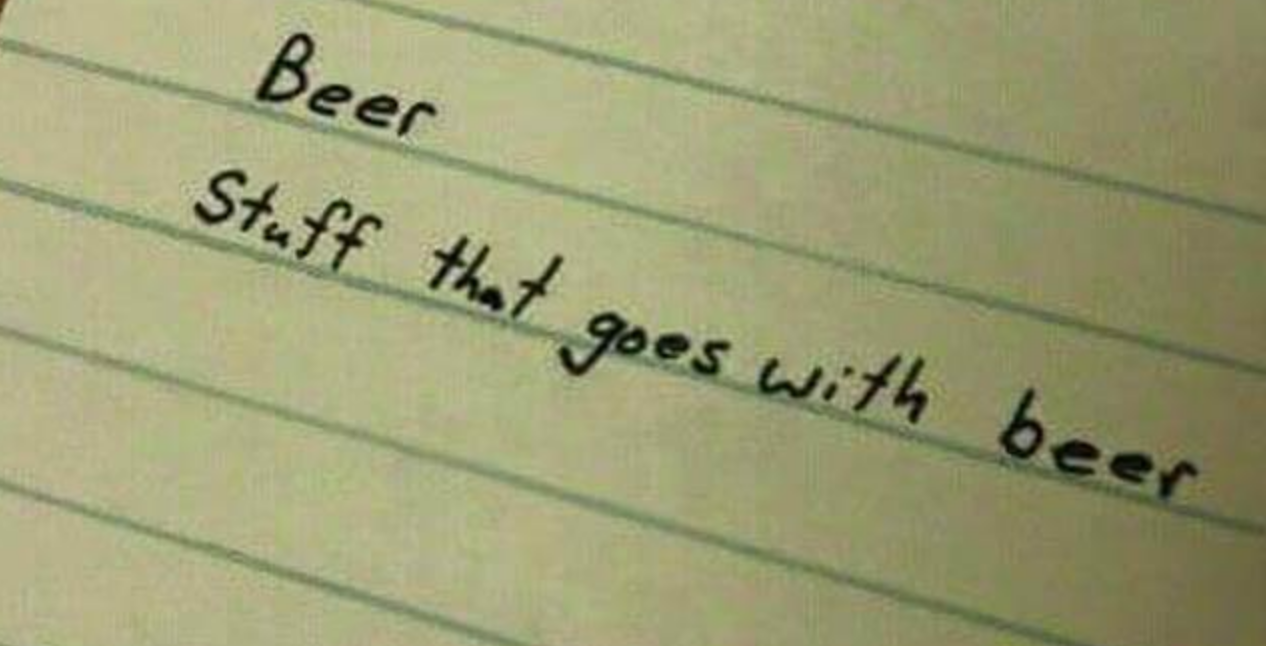 Beer
Stuff that goes with beer